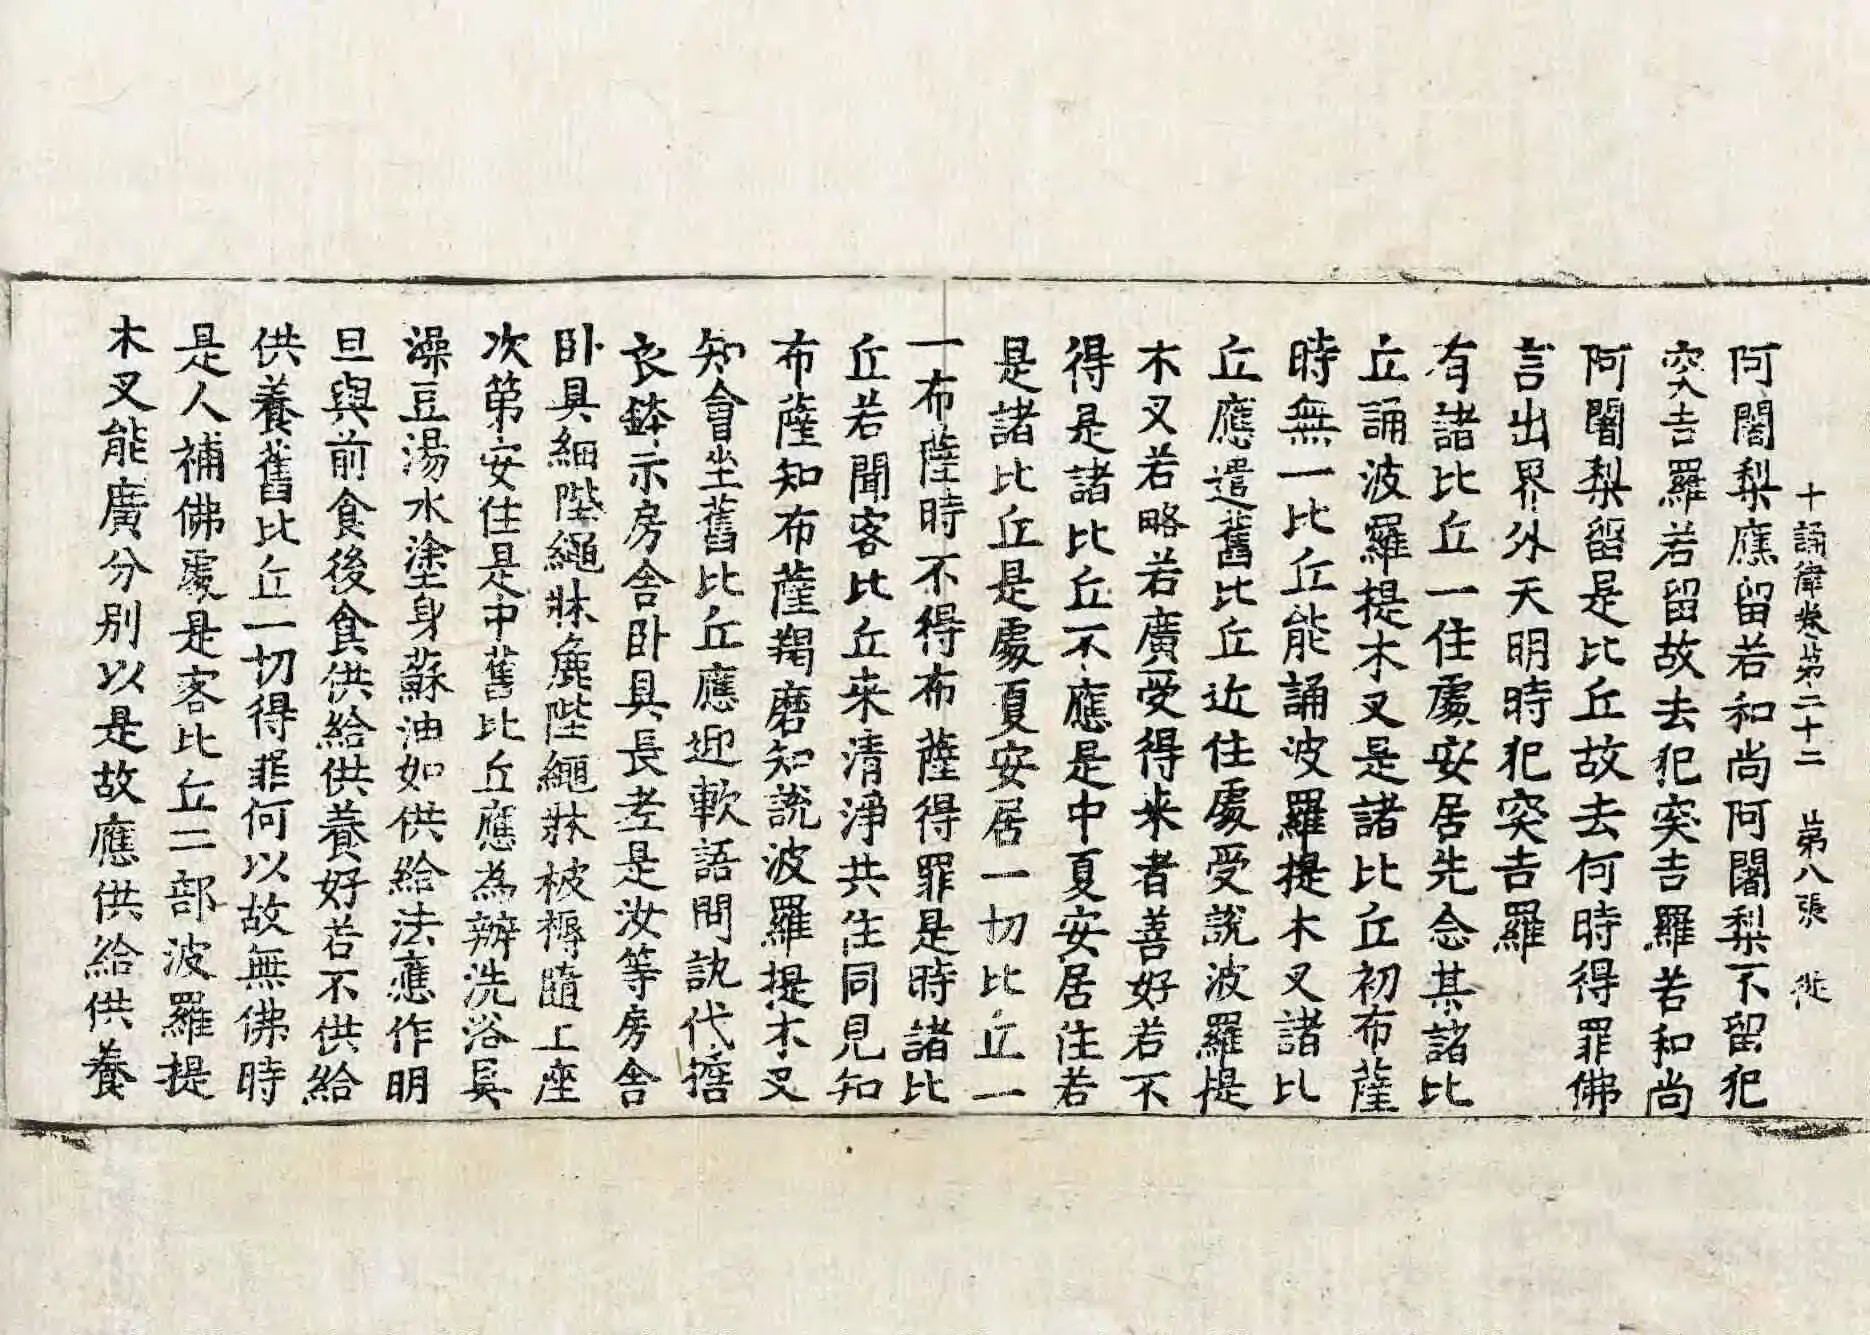 十誦律卷第二十二 第八張 從
阿闍梨應留若和尚阿闍梨不留犯
突吉羅若留故去犯突吉羅若和尚
阿闍梨留是比丘故去何時得罪佛
言出界外天明時犯突吉羅
有諸比丘一住處安居先念其諸比
丘誦波羅提木叉是諸比丘初布薩
時無一比丘能誦波羅提木叉諸比
丘應遣舊比丘近住處受說波羅提
木叉若略若廣受得来者善好若不
得是諸比丘不應是中夏安居住若
是諸比丘是處夏安居一切比丘一
一布薩時不得布薩得罪是時諸比
丘若聞客比丘来清淨共住同見知
布薩知布薩羯磨知說波羅提木叉
知會坐舊比丘應迎軟語問訊代擔
衣鉢示房舍卧具長老是汝等房舍
卧具細陛繩牀麁陛繩牀被褥隨上座
次第安住是中舊比丘應為辦洗浴具
澡豆湯水塗身蘇油如供給法應作明
旦與前食後食供給供養好若不供給
供養舊比丘一切得罪何以故無佛時
是人補佛處是客比丘二部波羅提
木叉能廣分別以是故應供給供養